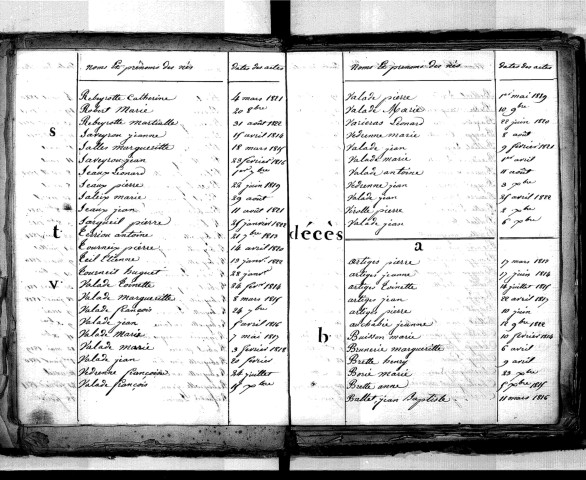 Noms et prénoms des nés Dates des actes
Rebeyrotte Catherine 4 mars 1821
Robert Marie 20 8bre
Rebeyrotte martialle 31 août 1822
s
Saveyron jeanne 15 avril 1814
Salles marguerite 18 mars 1815
Saveyron jean 29 février 1816
Jeaux Léonard
Jeaux pierre 22 juin 1819
marie 29 août
Jeaux jean 11 août 1821
pierre 25 janvier 1822
t
Terrion antoine 21 7bre 1813
Tourneix pierre 14 avril 1820
Teil Etienne 19 janv. 1822
Tourneix huguet 28 janv.
v
Valade Toinette 24 fev. 1814
Valade Margueritte 8 mars 1815
Valade françois 24 7bre
Valade jean 5 avril 1816
Valade Marie 7 mai 1817
Valade marie 3 février 1818
Valade jean 20 février
Vedrenne françoise 24 juillet
Valade françois 15 xbre
Noms et prénoms des nés Dates des actes
Valade pierre 1er mai 1819
Valade Marie 10 9bre
Varieras Léonard 22 juin 1820
Vedrenne marie 8 août
Valade jean 9 février 1821
Valade marie 1er avril
Valade antoine 11 août
Vedrenne jean 3 xbre
Valade jean 25 avril 1822
Virolle pierre 8 xbre
Valade jean 6 xbre
décès
a
artiges pierre 17 mars 1813
artiges jeanne 17 juin 1814
artiges Toinette 16 juillet 1815
artiges jean 22 avril 1817
artiges pierre 10 juin
archabié jeanne 12 9bre 1822
b
Buisson marie 10 février 1814
Brunerie margueritte 6 avril
Brette henry 9 avril
Borie marie 23 xbre
Brette anne 5 xbre 1815
Ballet jean Baptiste 11 mars 1816